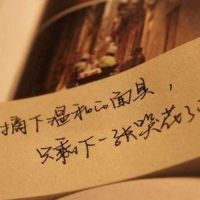 摘下温和的面具，
只剩下一张哭花了